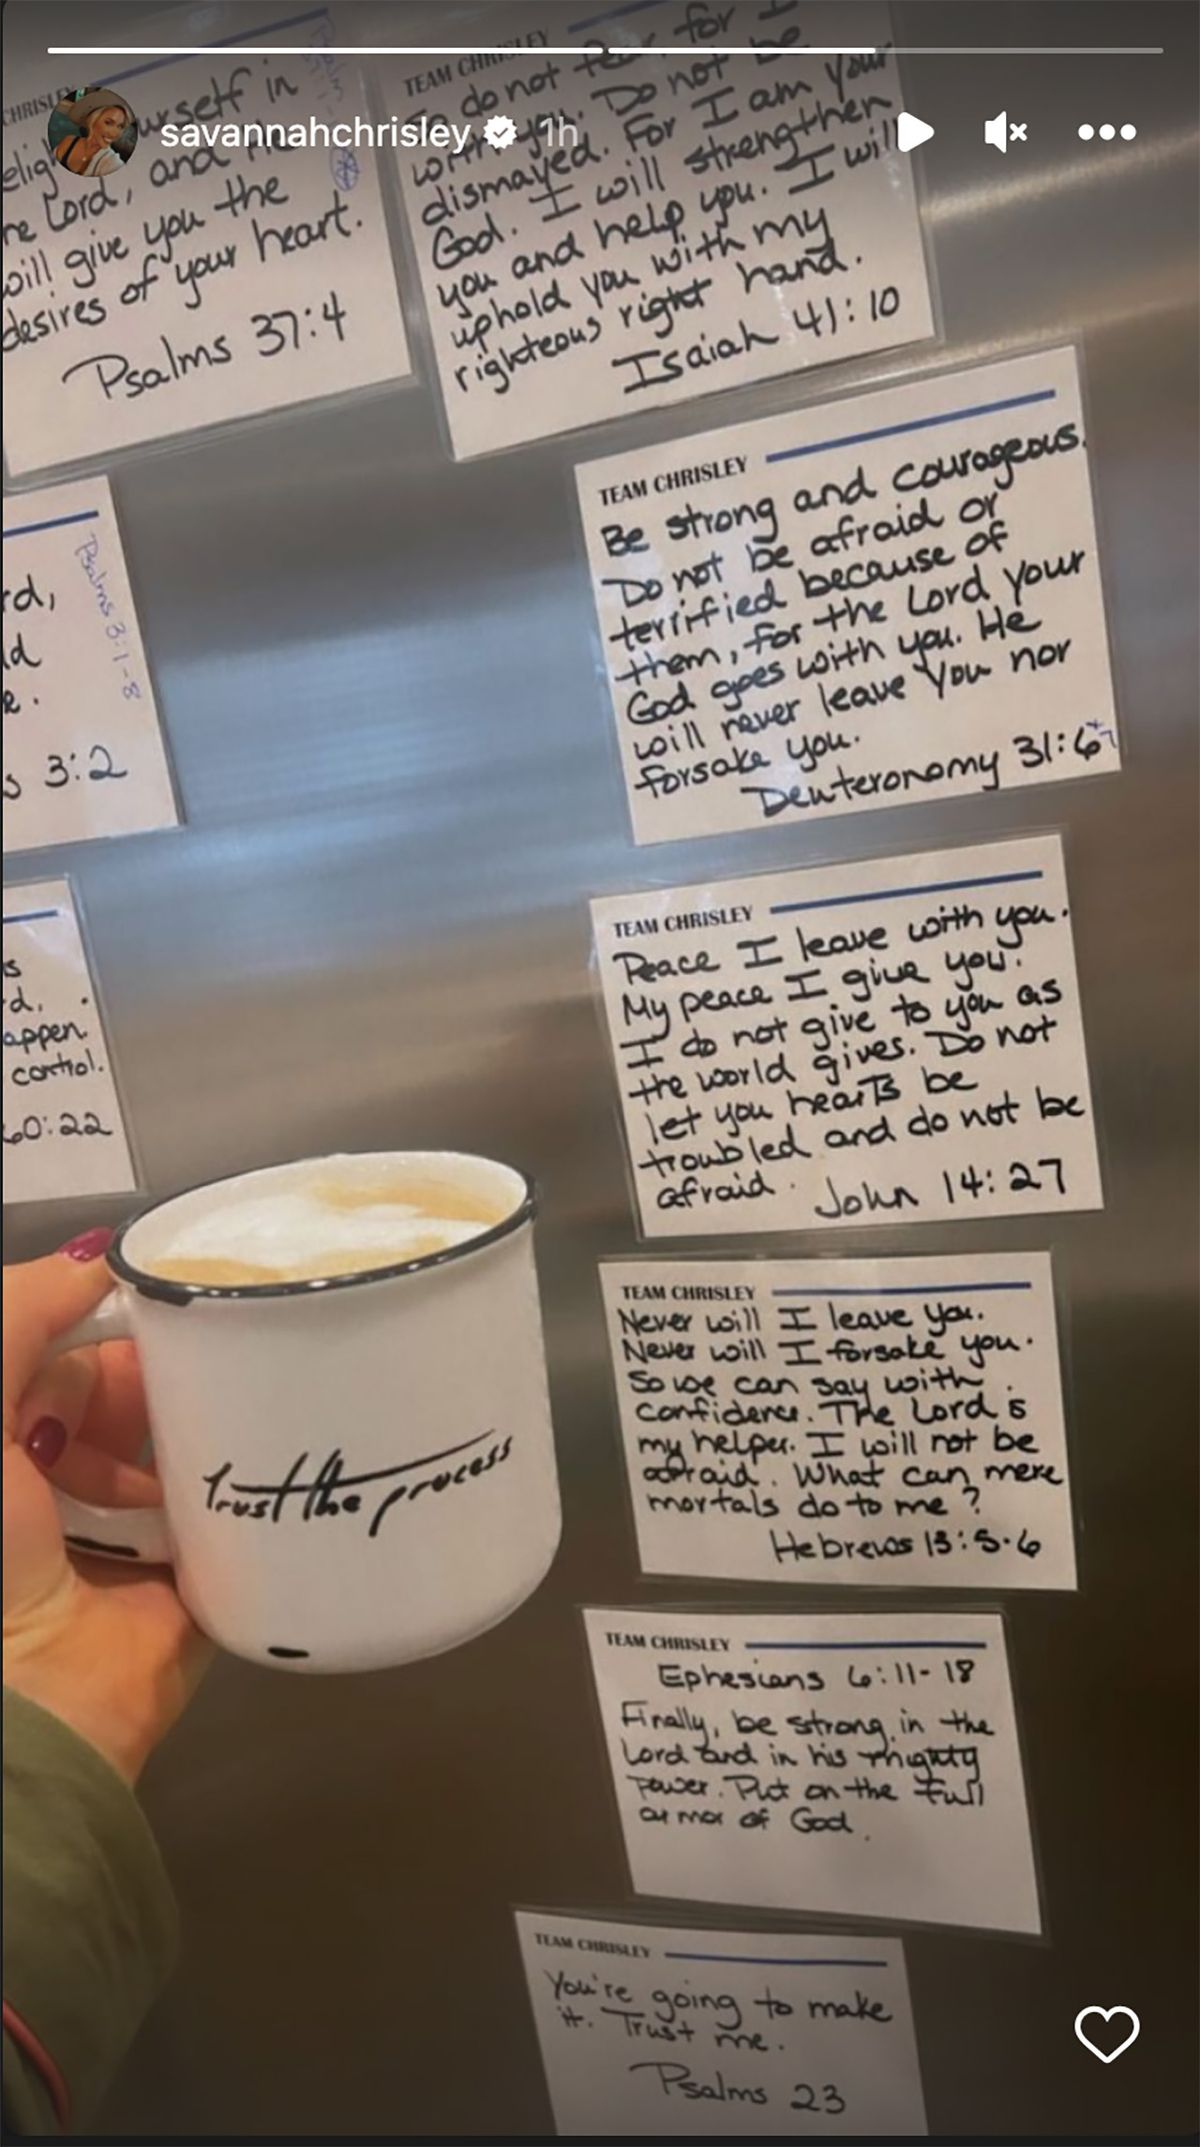 savannahchrisley 1h
urself in
re Lord, and He
will give you the
desires of your heart.
Psalms 37:4
TEAM CHRISLEY
do not fear for I
with you. Do not be
dismayed. For I am your
God. I will strengthen
you and help you. I will
uphold you with my
righteous right hand.
Isaiah 41:10
rd,
ld
e.
s 3:2
Psalms 3:1-8
TEAM CHRISLEY
Be strong and courageous.
Do not be afraid or
terrified because of
them, for the Lord your
God goes with you. He
will never leave you nor
forsake you.
Deuteronomy 31:6
s
d.
appen.
control.
60:22
TEAM CHRISLEY
Peace I leave with you.
My peace I give you.
I do not give to you as
the world gives. Do not
let you hearts be
troubled and do not be
afraid.
John 14:27
Trust the process
TEAM CHRISLEY
Never will I leave you.
Never will I forsake you.
So we can say with
confidence. The Lord is
my helper. I will not be
afraid. What can mere
mortals do to me?
Hebrews 13:5-6
TEAM CHRISLEY
Ephesians 6:11-18
Finally, be strong in the
Lord and in his mighty
power. Put on the Full
armor of God.
TEAM CHRISLEY
You're going to make
it. Trust me.
Psalms 23